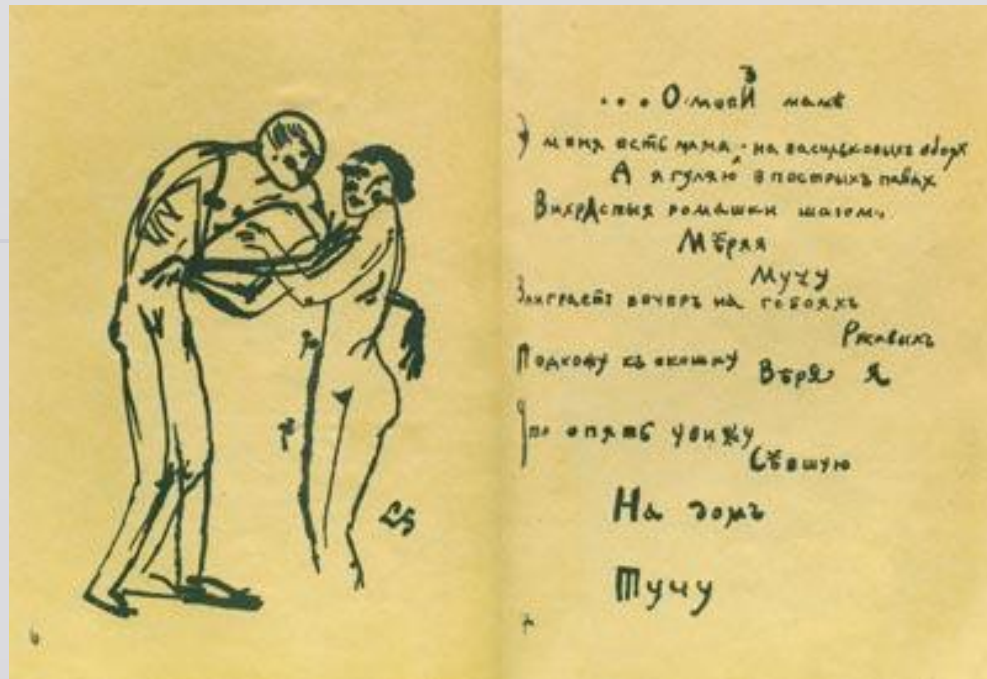 ...О моеЙ мамѣ
У меня есть мама на васильковыхъ обоях
А я гуляю в пестрыхъ павах
ВихрАстыя ромашки шагомъ
Мѣряя
Мучу
Заиграетъ вечеръ на гобояхъ
Ржавыхъ
Подхожу къ окошку Вѣря Я
Что опять увижу
Сѣвшую
На домъ
Тучу
6